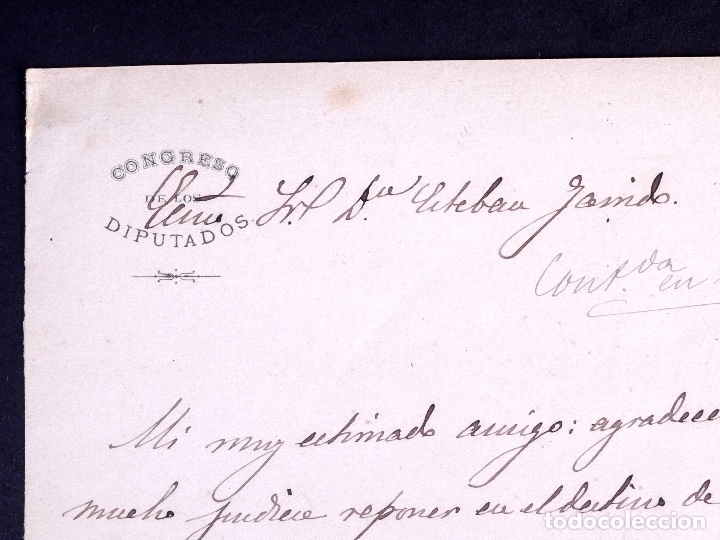 CONGRESO
DE LOS
DIPUTADOS.
Sr. Dn Esteban Garrido.
Cont.da en
Mi muy estimado amigo: agradece
mucho pudiera reponer en el destino de
todocoleccion
todocoleccion.net